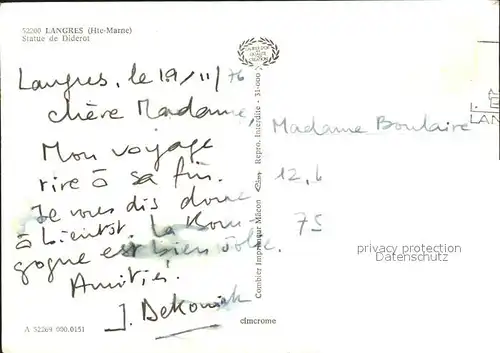 52200 LANGRES (Hte-Marne)
Statue de Diderot
Langres, le 19/11/76
chère Madame,
Mon voyage
tire à sa fin.
Je vous dis donc
à bientôt. La Bour-
gogne est bien jolie.
Amitiés.
J. Dekonink
Madame Boulaire
12, b
75
Combier Imprimeur Mâcon
Repro. Interdite - 31-000
privacy protection
Datenschutz
A 52269 000.0151
cimcrome
LAN